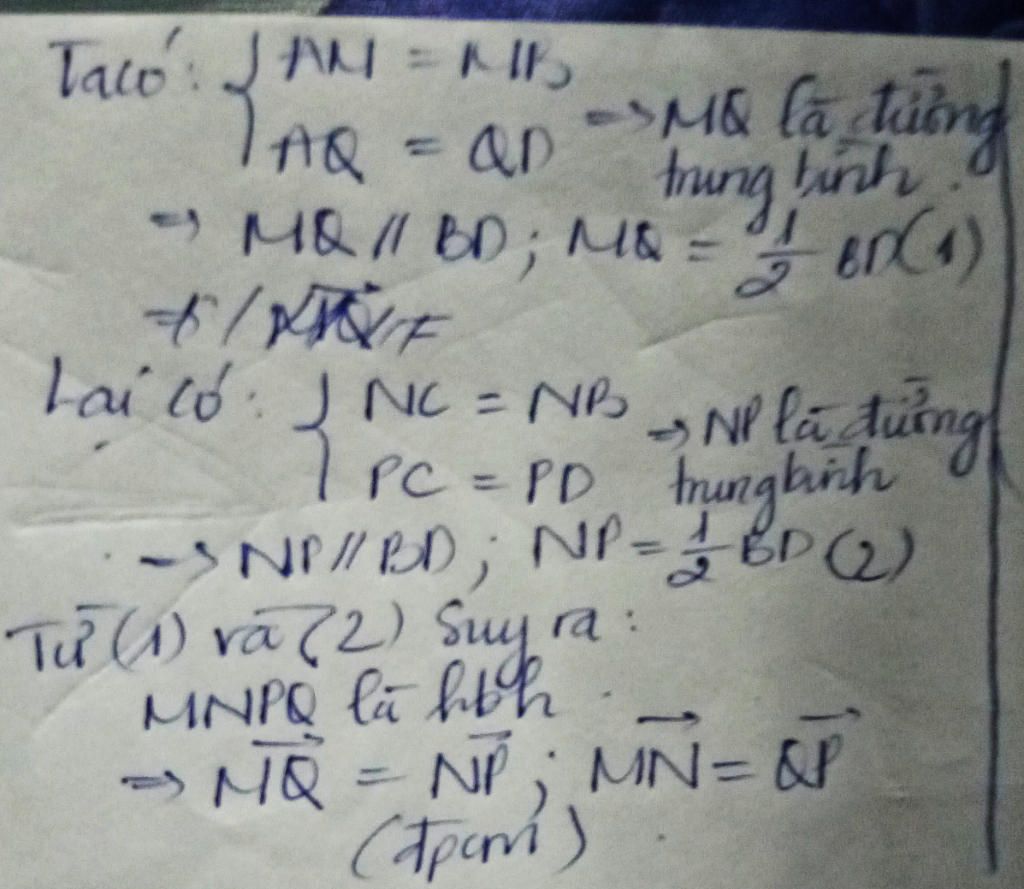 Ta có: { AM = MB
AQ = QD => MQ là đường
trung bình.
=> MQ // BD; MQ = 1/2 BD (1)
Lại có: { NC = NB => NP là đường
PC = PD trung bình
-> NP // BD; NP = 1/2 BD (2)
Từ (1) và (2) Suy ra:
MNPQ là hbh.
=> \overrightarrow{MQ} = \overrightarrow{NP}; \overrightarrow{MN} = \overrightarrow{QP}
(đpcm).